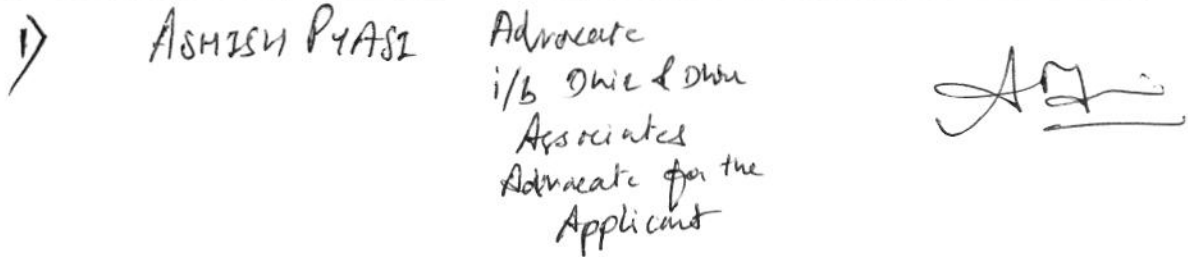 1) ASHISH PYASI Advocate
i/b Dhir & Dhir
Associates
Advocate for the
Applicant